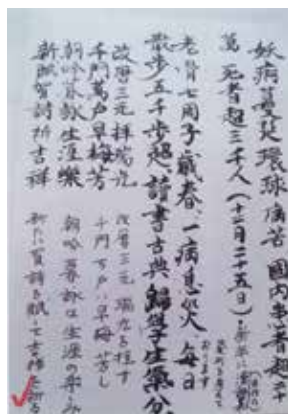 妖病蔓延環球痛苦 國內患者超二十
萬 死者超三千人(十二月二十五日)
老骨七周子歳春、一病息災 毎日
散步五千步超 讀書古典 歸學生氣分
改曆三元拝瑞光
千門萬戶早梅芳
朝吟暮詠生涯樂
新賦賀詩祈吉祥
改暦三元 瑞光を拝す
千門万戸 早梅芳し
朝吟暮詠 生涯の楽しみ
新たに賀詩を賦して吉祥を祈る